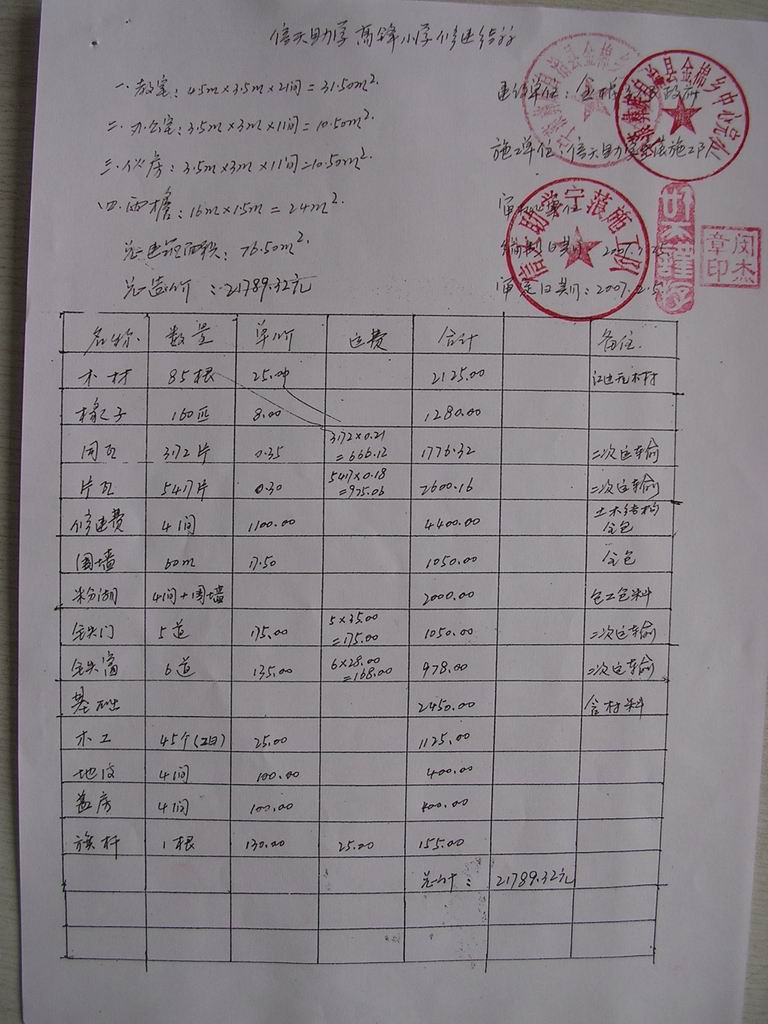 信天助学高锋小学修建结算
一.教室：4.5m×3.5m×2间=31.50m².
二.办公室：3.5m×3m×1间=10.50m².
三.伙房：3.5m×3m×1间=10.50m².
四.雨檐：16m×1.5m=24m².
总建筑面积：76.50m².
总造价：21789.32元
施工单位：信天助学宁蒗施工队
审定日期：2007.2.5
信天助学宁蒗施工队
闵杰章印
名称 数量 单价 运费 合计 备注
木材 85根 25.00 2125.00
椽子 160匹 8.00 1280.00
筒瓦 3172片 0.35 3172×0.21=666.12 1776.32 二次运输
片瓦 5417片 0.30 5417×0.18=975.06 2600.16 二次运输
修建费 4间 1100.00 4400.00 土木结构全包
围墙 60m 17.50 1050.00 全包
粉糊 4间+围墙 2000.00 包工包料
全铁门 5道 175.00 5×35.00=175.00 1050.00 二次运输
全铁窗 6道 135.00 6×28.00=168.00 978.00 二次运输
基础 2450.00 含材料
木工 45个(工日) 25.00 1125.00
地皮 4间 100.00 400.00
盖房 4间 100.00 400.00
旗杆 1根 130.00 25.00 155.00
总计： 21789.32元